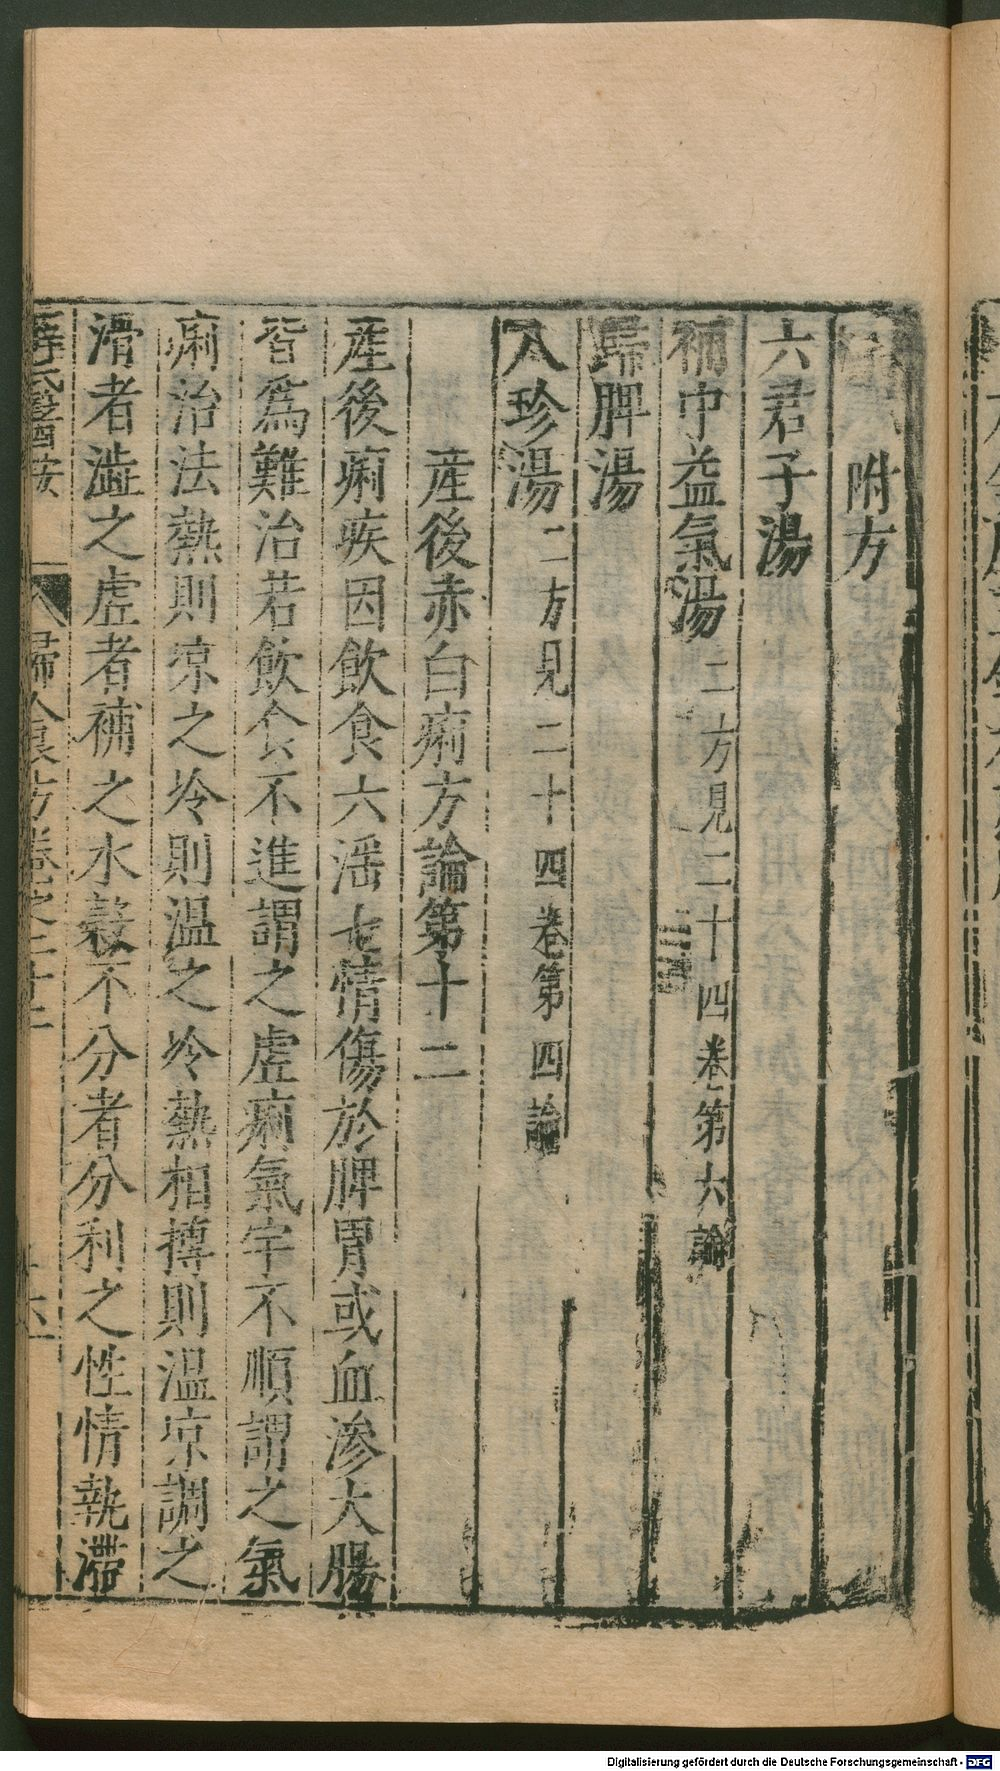 附方
六君子湯
補中益氣湯 二方見二十四卷第六論
歸脾湯
八珍湯 二方見二十四卷第四論
産後赤白痢方論第十二
産後痢疾因飲食六淫七情傷於脾胃或血滲大腸
皆為難治若飲食不進謂之虛痢氣宇不順謂之氣
痢治法熱則凉之冷則温之冷熱相搏則温凉調之
滑者澁之虛者補之水穀不分者分利之性情執滯
薛氏醫按 婦人良方卷之二十二 六
Digitalisierung gefördert durch die Deutsche Forschungsgemeinschaft - DFG